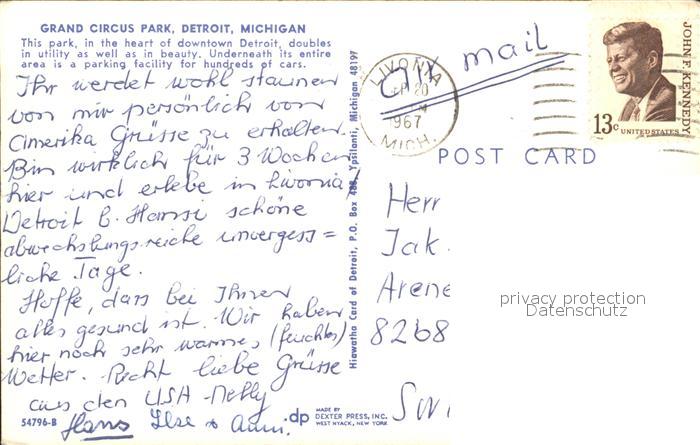 GRAND CIRCUS PARK, DETROIT, MICHIGAN
This park, in the heart of downtown Detroit, doubles
in utility as well as in beauty. Underneath its entire
area is a parking facility for hundreds of cars.
Ihr werdet wohl staunen
von mir persönlich von
Amerika Grüsse zu erhalten.
Bin wirklich für 3 Wochen
hier und erlebe in Livonia/
Detroit b. Hansi schöne
abwechslungsreiche unvergess=
liche Tage.
Hoffe, dass bei Ihnen
alles gesund ist. Wir haben
hier noch sehr warmes, (feuchtes)
Wetter. Recht liebe Grüsse
aus den USA Nelly
Hans Ilse & Anni.
54796-B
Hiawatha Card of Detroit, P.O. Box 488, Ypsilanti, Michigan 48197
dp
MADE BY
DEXTER PRESS, INC.
WEST NYACK, NEW YORK
air mail
LIVONIA
SEP 20
1967
MICH.
JOHN F. KENNEDY
13c UNITED STATES
POST CARD
Herr
Jak.
Arene
8268
privacy protection
Datenschutz